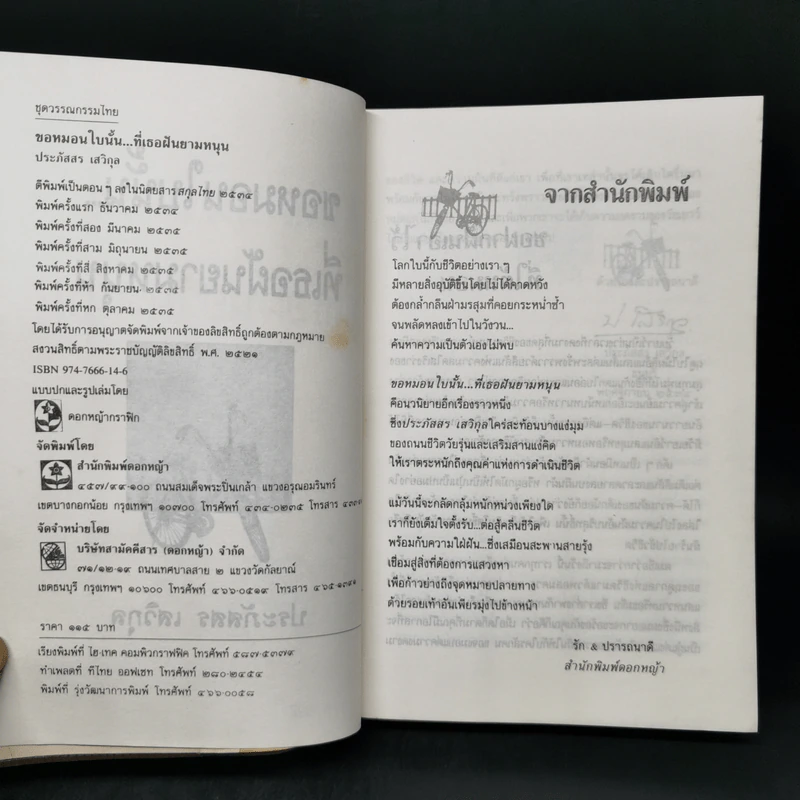 ชุดวรรณกรรมไทย
ขอหมอนใบนั้น...ที่เธอฝันยามหนุน
ประภัสสร เสวิกุล
ตีพิมพ์เป็นตอน ๆ ลงในนิตยสารสกุลไทย ๒๕๓๔
พิมพ์ครั้งแรก ธันวาคม ๒๕๓๔
พิมพ์ครั้งที่สอง มีนาคม ๒๕๓๕
พิมพ์ครั้งที่สาม มิถุนายน ๒๕๓๕
พิมพ์ครั้งที่สี่ สิงหาคม ๒๕๓๕
พิมพ์ครั้งที่ห้า กันยายน ๒๕๓๕
พิมพ์ครั้งที่หก ตุลาคม ๒๕๓๕
โดยได้รับการอนุญาตจัดพิมพ์จากเจ้าของลิขสิทธิ์ถูกต้องตามกฎหมาย
สงวนสิทธิ์ตามพระราชบัญญัติลิขสิทธิ์ พ.ศ. ๒๕๒๑
ISBN 974-7666-14-6
แบบปกและรูปเล่มโดย
ดอกหญ้ากราฟิก
จัดพิมพ์โดย
สำนักพิมพ์ดอกหญ้า
๔๕๗/๙๙-๑๐๐ ถนนสมเด็จพระปิ่นเกล้า แขวงอรุณอมรินทร์
เขตบางกอกน้อย กรุงเทพฯ ๑๐๗๐๐ โทรศัพท์ ๔๓๔-๐๒๓๕ โทรสาร
จัดจำหน่ายโดย
บริษัทสามัคคีสาร (ดอกหญ้า) จำกัด
๗๑/๑๒-๑๙ ถนนเทศบาลสาย ๒ แขวงวัดกัลยาณ์
เขตธนบุรี กรุงเทพฯ ๑๐๖๐๐ โทรศัพท์ ๔๖๖-๐๕๑๙ โทรสาร
ราคา ๑๑๕ บาท
เรียงพิมพ์ที่ ไฮ-เทค คอมพิวกราฟฟิค โทรศัพท์ ๕๘๗-๕๓๗๙
ทำเพลตที่ ทีไทย ออฟเซท โทรศัพท์ ๒๘๐-๒๔๕๔
พิมพ์ที่ รุ่งวัฒนาการพิมพ์ โทรศัพท์ ๔๖๖-๐๐๕๘
จากสำนักพิมพ์
โลกใบนี้กับชีวิตอย่างเรา ๆ
มีหลายสิ่งอุบัติขึ้นโดยไม่ได้คาดหวัง
ต้องกล้ำกลืนฝ่ามรสุมที่คอยกระหน่ำซ้ำ
จนพลัดหลงเข้าไปในวังวน...
ค้นหาความเป็นตัวเองไม่พบ
ขอหมอนใบนั้น...ที่เธอฝันยามหนุน
คือนวนิยายอีกเรื่องราวหนึ่ง
ซึ่งประภัสสร เสวิกุลใคร่สะท้อนบางแง่มุม
ของถนนชีวิตวัยรุ่นและเสริมสานแง่คิด
ให้เราตระหนักถึงคุณค่าแห่งการดำเนินชีวิต
แม้วันนี้จะกลัดกลุ้มหนักหน่วงเพียงใด
เราก็ยังเต็มใจตั้งรับ...ต่อสู้คลื่นชีวิต
พร้อมกับความใฝ่ฝัน...ซึ่งเสมือนสะพานสายรุ้ง
เชื่อมสู่สิ่งที่ต้องการแสวงหา
เพื่อก้าวย่างถึงจุดหมายปลายทาง
ด้วยรอยเท้าอันเพียรมุ่งไปข้างหน้า
รัก & ปรารถนาดี
สำนักพิมพ์ดอกหญ้า